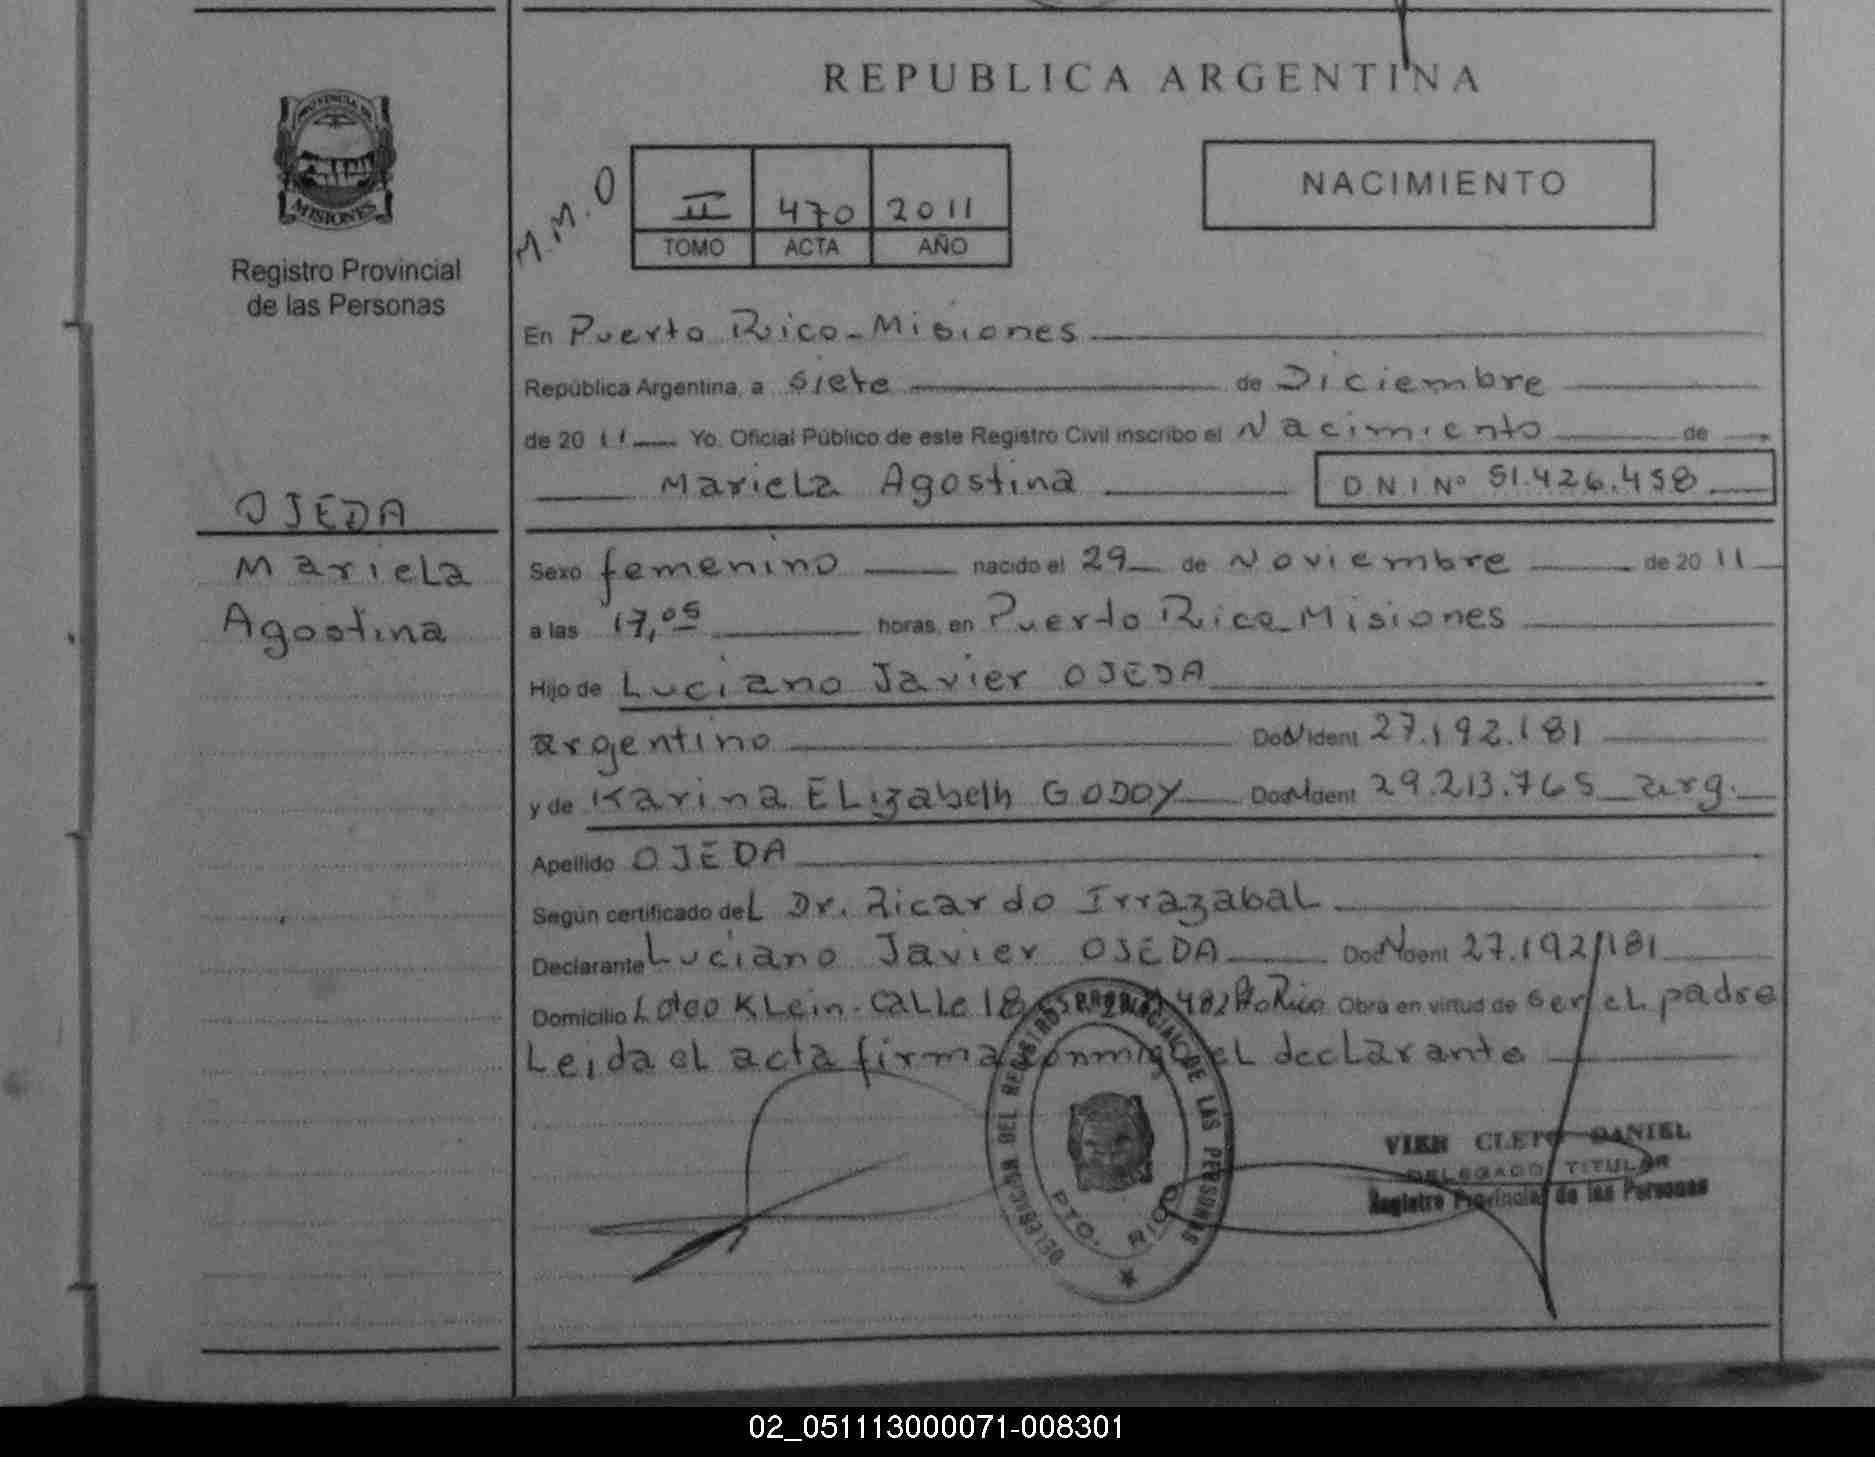 REPUBLICA ARGENTINA
PROVINCIA DE
MISIONES
Registro Provincial
de las Personas
M.M.O
II 470 2011
TOMO ACTA AÑO
NACIMIENTO
En Puerto Rico - Misiones
República Argentina, a siete de Diciembre
de 20 11 Yo. Oficial Público de este Registro Civil inscribo el Nacimiento de
Mariela Agostina D.N.I Nº 51.426.458
OJEDA
Mariela
Agostina
Sexo femenino nacido el 29 de Noviembre de 20 11
a las 17,05 horas, en Puerto Rico Misiones
Hijo de Luciano Javier OJEDA
argentino Doc Ident 27.192.181
y de Karina ELizabeth GODOY Doc Ident 29.213.765 arg.
Apellido OJEDA
Según certificado deL Dr. Ricardo IrrazabaL
Declarante Luciano Javier OJEDA Doc Ident 27.192.181
Domicilio Loteo KLein - CaLLe 18 482 Pto Rico Obra en virtud de ser eL padre
Leida eL acta firma conmigo eL decLarante
DELEGACION DEL REGISTRO PROVINCIAL DE LAS PERSONAS
PTO. RICO
VIER CLETO DANIEL
DELEGADO TITULAR
Registro Provincial de las Personas
02_051113000071-008301